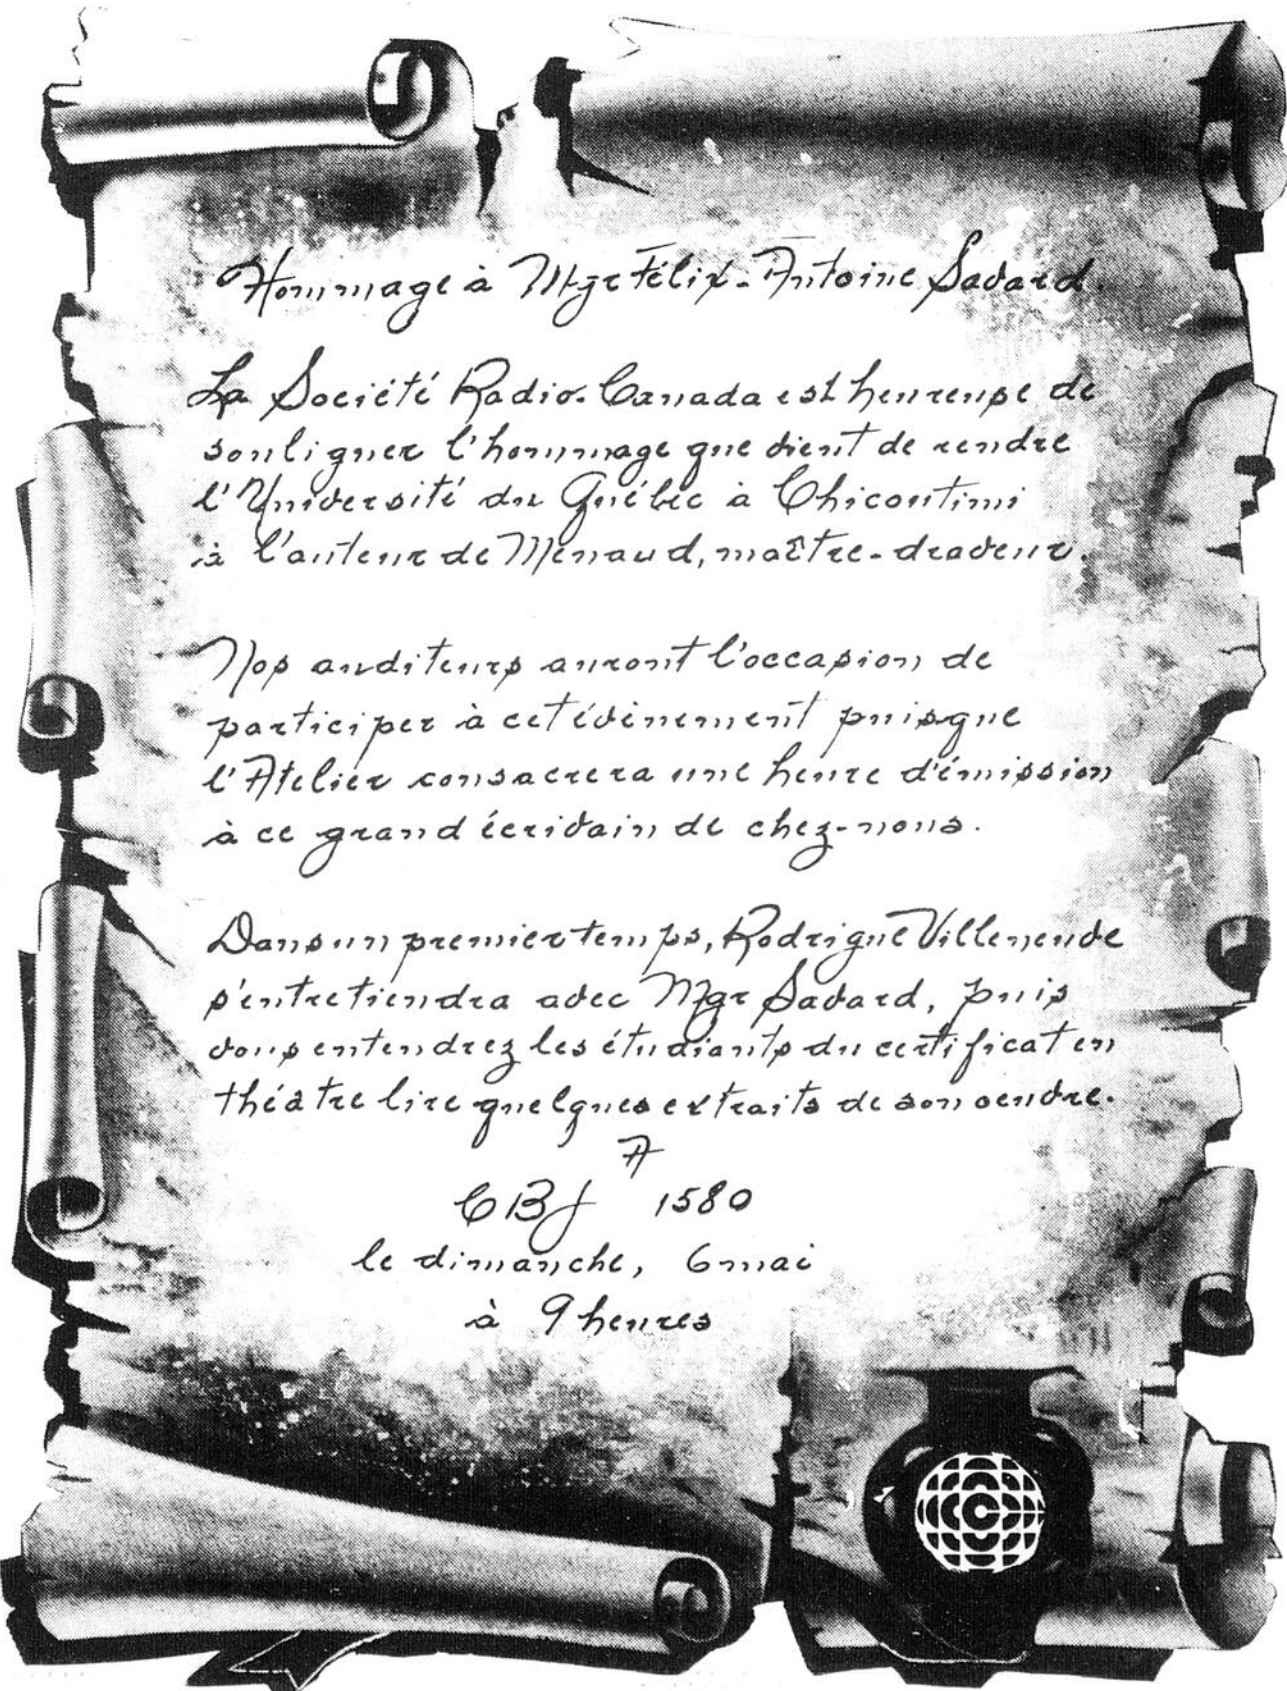 Hommage à Mgr Félix-Antoine Savard.
La Société Radio-Canada est heureuse de
souligner l'hommage que vient de rendre
l'Université du Québec à Chicoutimi
à l'auteur de Menaud, maître-draveur.
Nos auditeurs auront l'occasion de
participer à cet événement puisque
l'Atelier consacrera une heure d'émission
à ce grand écrivain de chez-nous.
Dans un premier temps, Rodrigue Villeneuve
s'entretiendra avec Mgr Savard, puis
vous entendrez les étudiants du certificat en
théâtre lire quelques extraits de son oeuvre.
A
CBJ 1580
le dimanche, 6 mai
à 9 heures